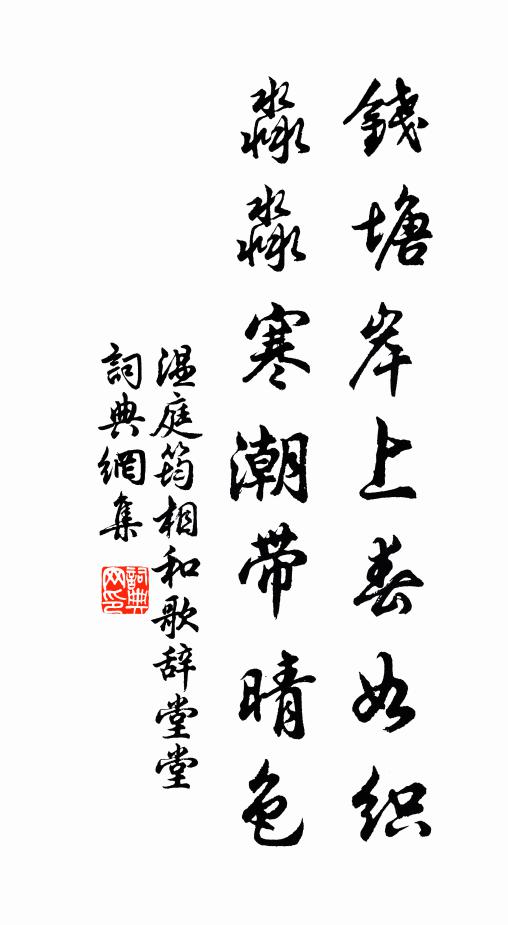 錢塘岸上春如织
淼淼寒潮带晴色
温庭筠相和歌辞堂堂
詞典網集
詞典網印